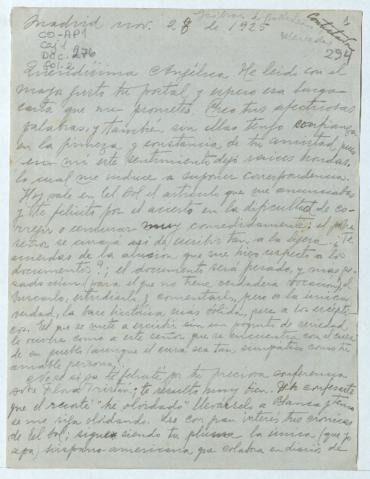 Madrid nov. 28 de 1925
Contestada
1
CO-AP1
Caj 1
Doc. 276
fol. 2
294
Queridísima Angélica. He leído con el
mayor gusto tu postal, y espero esa larga
carta que me prometes. Creo tus afectuosas
palabras, y también con ellas tengo confianza
en la firmeza y constancia de tu amistad, pues
en mí este sentimiento dejó raíces hondas,
lo cual me induce a suponer correspondencia.
Hoy sale en El Sol el artículo que me anunciabas
y te felicito por el acierto en la dificultad de co-
rregir o censurar muy comedidamente; el pobre
señor se ensayó así de escribir tan a la ligera. ¿Te
acuerdas de la alusión que me hizo respecto a los
documentos?; el documento será pesado, y mas pe-
sado celoso (para el que no tiene verdadera vocación) el
buscarlo, estudiarlo y comentarlo, pero es la única
verdad, la base histórica mas sólida, pese a los escépti-
cos. El que se mete a escribir sin un poquito de seriedad,
le ocurre como a este señor que se encuentra con el cura
de su pueblo (aunque el cura sea tan simpático como tu
amable persona).
También te felicito por tu preciosa conferencia
sobre Flora Tristán; te resultó muy bien. Ha confesaré
que el recorte he olvidado llevárselo a Blanca y temo
se me siga olvidando. Leo con gran interés tus crónicas
de El Sol; sigue siendo tu pluma la única (que yo
sepa) hispano-americana que colabora en diarios de